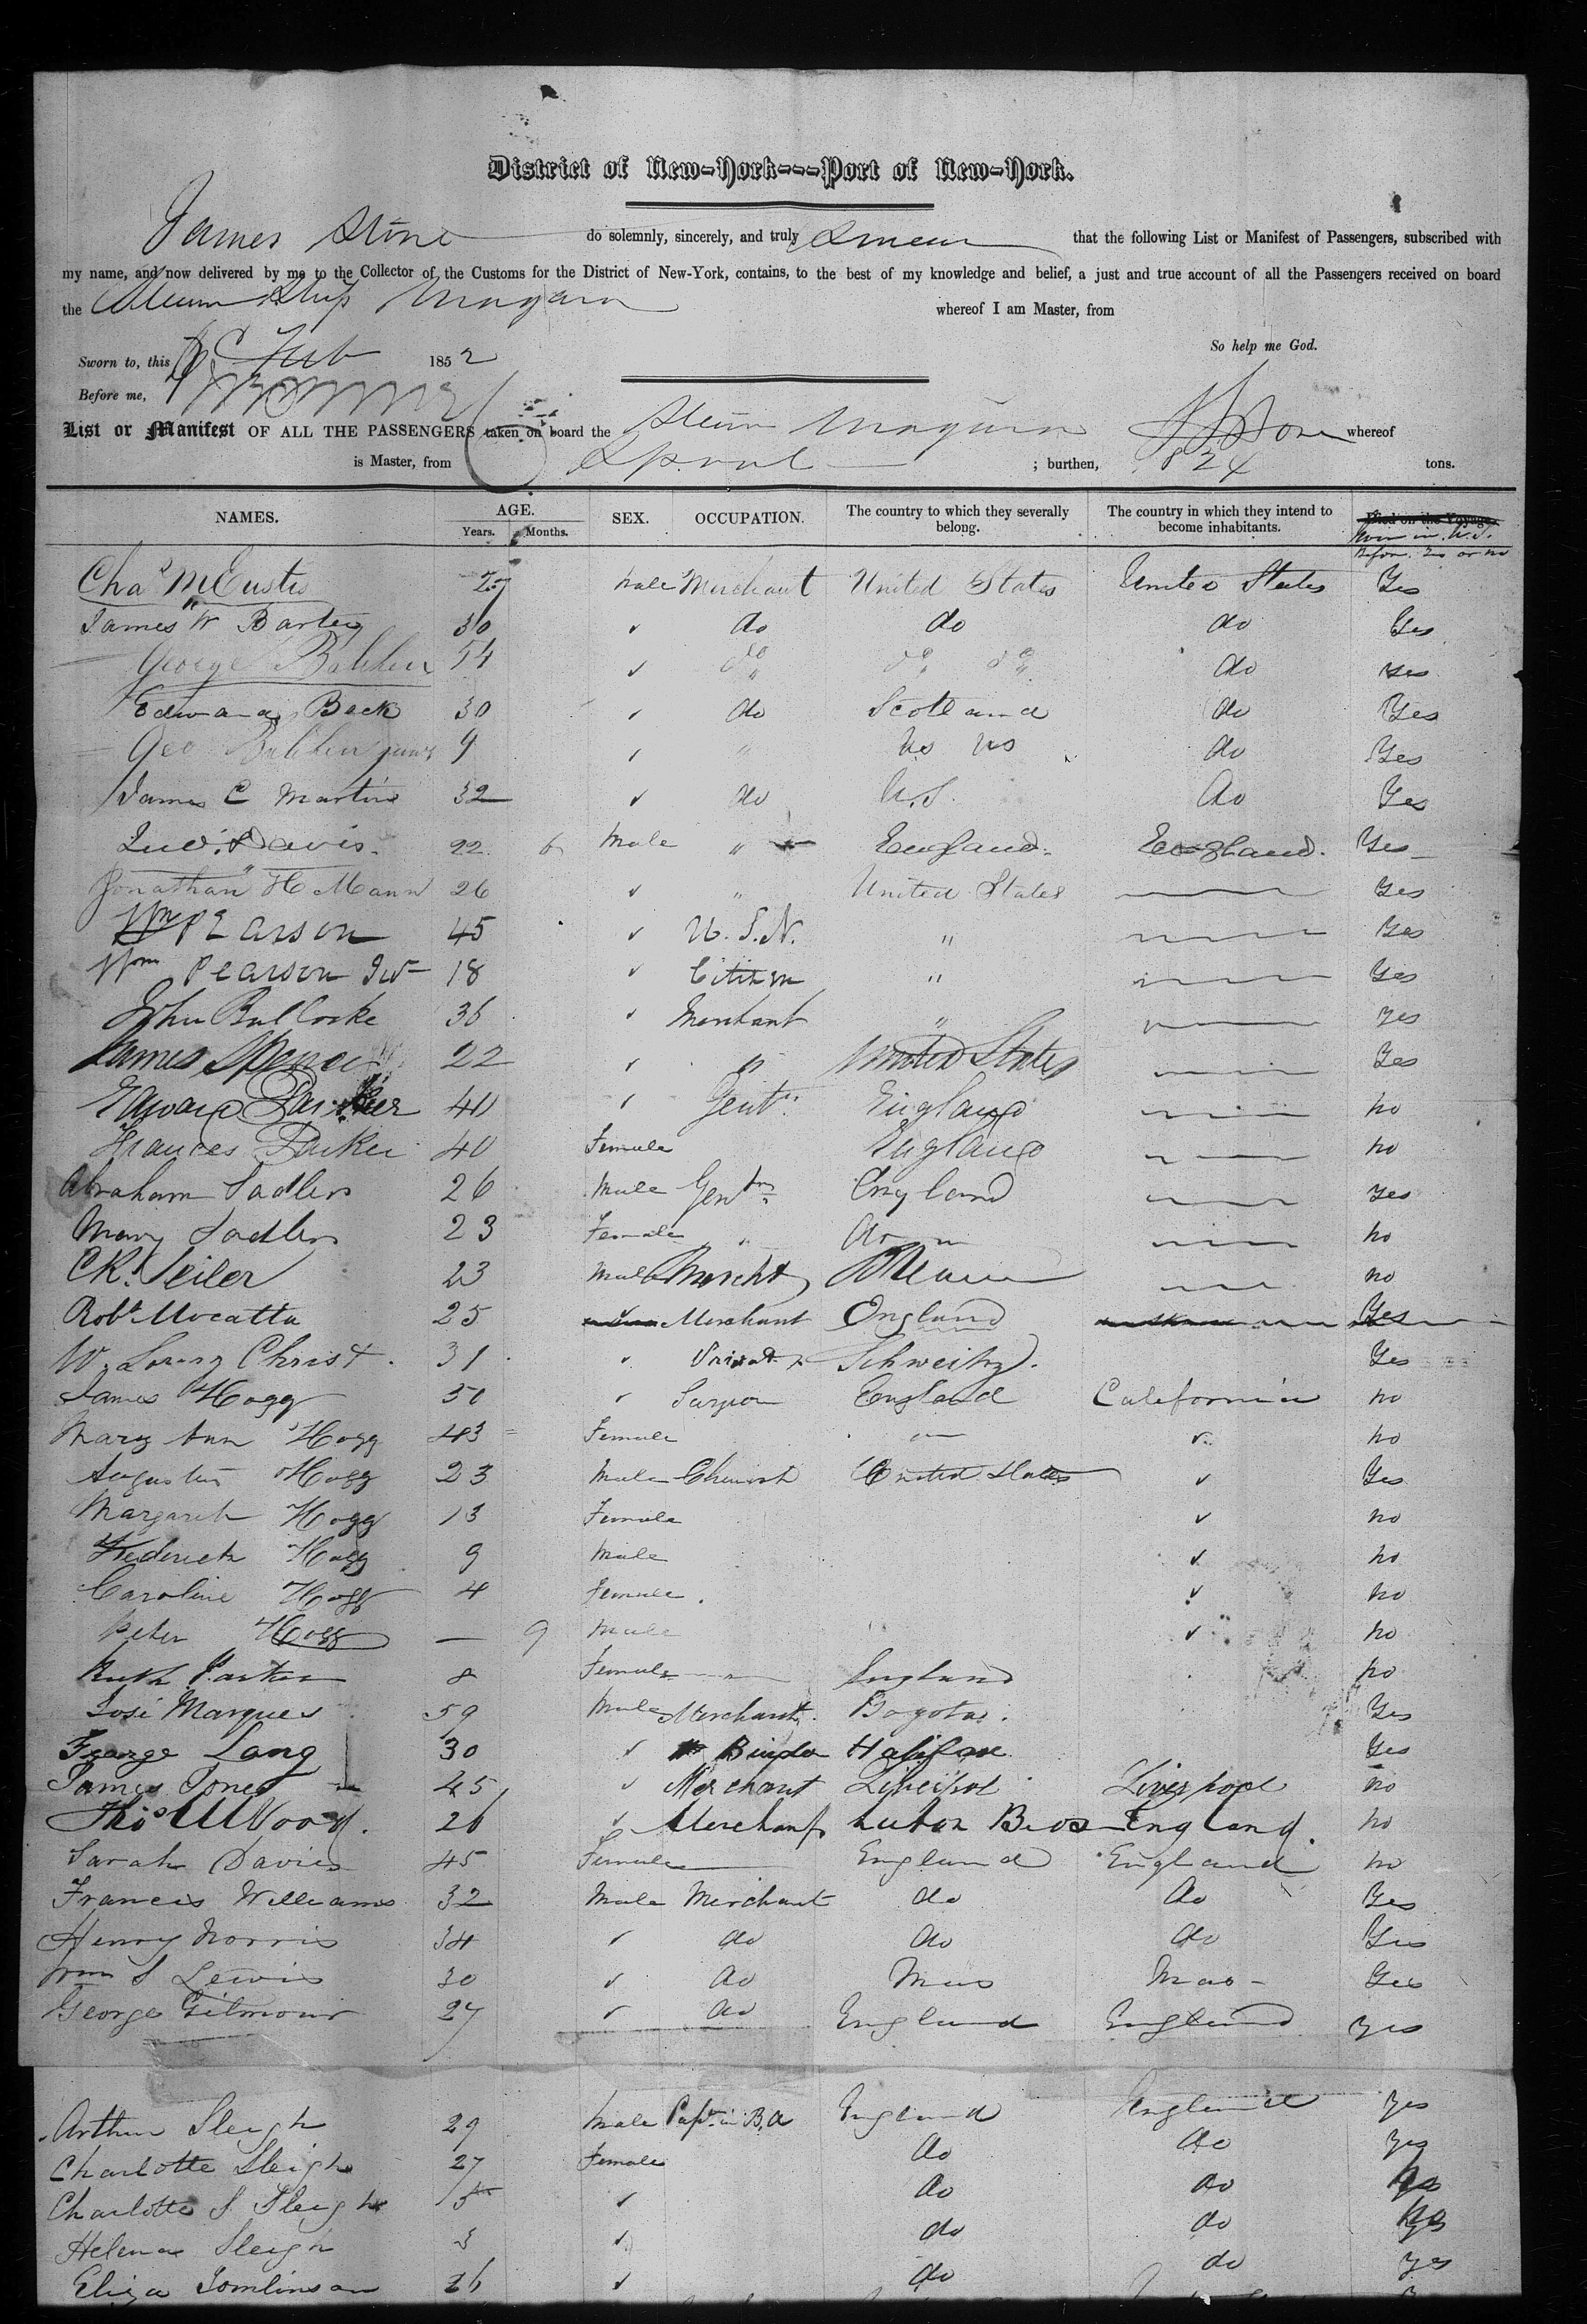 District of New-York---Port of New-York.
James Stone do solemnly, sincerely, and truly Swear that the following List or Manifest of Passengers, subscribed with
my name, and now delivered by me to the Collector of the Customs for the District of New-York, contains, to the best of my knowledge and belief, a just and true account of all the Passengers received on board
the Steam Ship Niagara whereof I am Master, from
So help me God.
Sworn to, this Feb 1852
Before me,
List or Manifest OF ALL THE PASSENGERS taken on board the Steam Niagara J Stone whereof
is Master, from Lpool ; burthen, 1824 tons.
NAMES. AGE. Years. Months. SEX. OCCUPATION. The country to which they severally belong. The country in which they intend to become inhabitants. Died on the Voyage.
Been in U.S. Before. Yes or no
Chas McEustis 27 Male Merchant United States United States Yes
James W Barley 30 ✓ do do do Yes
George Bohlen 54 ✓ do do do do Yes
Edward Back 30 ✓ do Scotland do Yes
Geo Bohlen junr 9 ✓ " us us do Yes
James C Martin 32 ✓ do U.S. do Yes
Davis 22 6 Male " England England. Yes
Jonathan H Mann 26 ✓ " United States Yes
Wm Pearson 45 ✓ U.S.N. " Yes
Wm Pearson Jur 18 ✓ Citizen " Yes
John Bullocke 36 ✓ Merchant " yes
James Spence 22 ✓ " United States Yes
Edward Parker 40 ✓ Gent. England no
Frances Parker 40 Female England no
Abraham Sadlers 26 Male Gentn England yes
Mary Sadlers 23 Female " do no
CR. Seiler 23 Male Mercht no
Robt Mocatta 25 Merchant England Yes
W. Christ. 31 ✓ Privat Schweitz. Yes
James Hogg 50 ✓ Surgeon England California no
Mary Ann Hogg 43 Female " ✓ no
Augustus Hogg 23 Male Chemist United States ✓ Yes
Margareth Hogg 13 Female ✓ no
Frederick Hogg 9 Male ✓ no
Caroline Hogg 4 Female ✓ no
Peter Hogg — 9 Male ✓ no
Ruth Parker 8 Female England no
José Marques 59 Male Merchant. Bogota. Yes
George Lang 30 ✓ Halifax Yes
James Jones 45 ✓ Merchant Liverpool Liverpool no
Thos W Wood. 26 ✓ Merchant England. no
Sarah Davies 45 Female England England no
Francis Williams 32 Male Merchant do do Yes
Henry Norris 34 ✓ do do do Yes
Wm S Lewis 30 ✓ do Yes
George Gilmour 27 ✓ do England England yes
Arthur Sleigh 29 Male Captn in B.A England England yes
Charlotte Sleigh 27 Female do do yes
Charlotte S Sleigh 5 ✓ do do no
Helena Sleigh 3 ✓ do do no
Eliza Tomlinson 26 ✓ do do yes